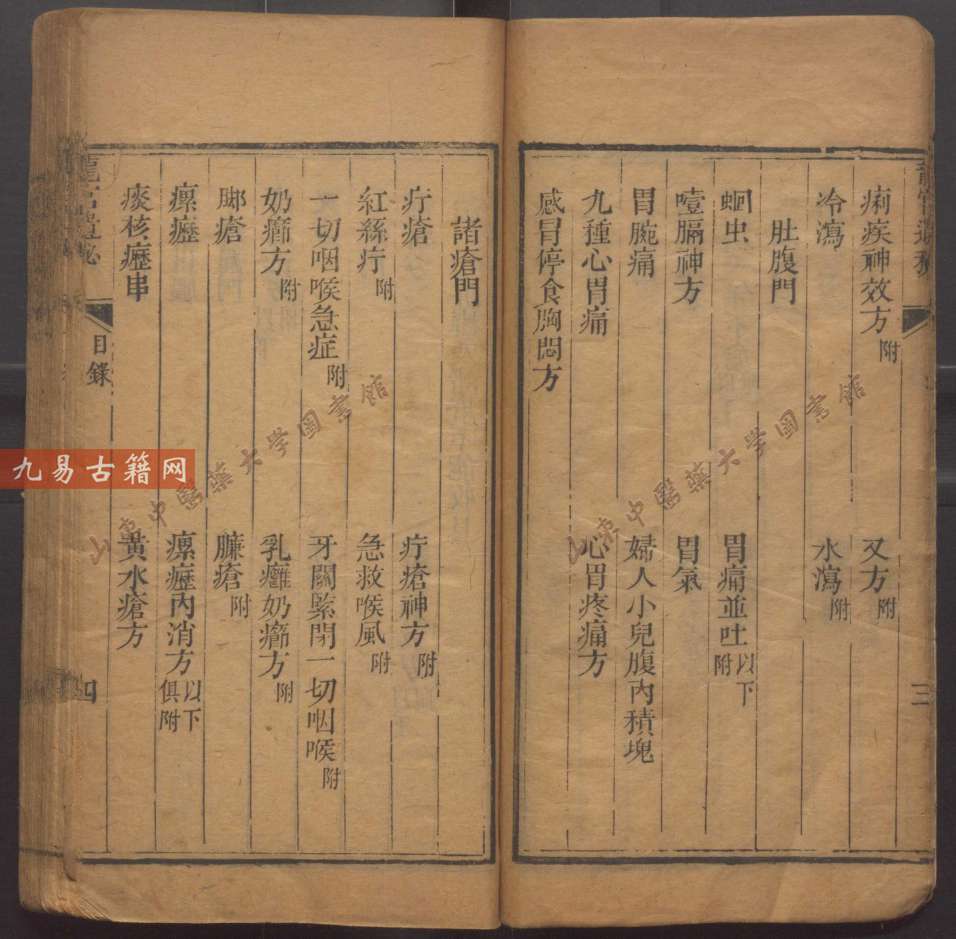 痢疾神效方附 又方附
冷瀉 水瀉附
肚腹門
蛔虫 胃痛並吐以下附
噎膈神方 胃氣
胃腕痛 婦人小兒腹內積塊
九種心胃痛 心胃疼痛方
感冒停食胸悶方
三
諸瘡門
疔瘡 疔瘡神方附
紅絲疔附 急救喉風附
一切咽喉急症附 牙關緊閉一切咽喉附
奶癤方附 乳癰奶癤方附
腳瘡 臁瘡附
瘰癧 瘰癧內消方以下俱附
痰核癧串 黃水瘡方
目錄
四
九易古籍网
中醫藥大學圖書館
中醫藥大學圖書館